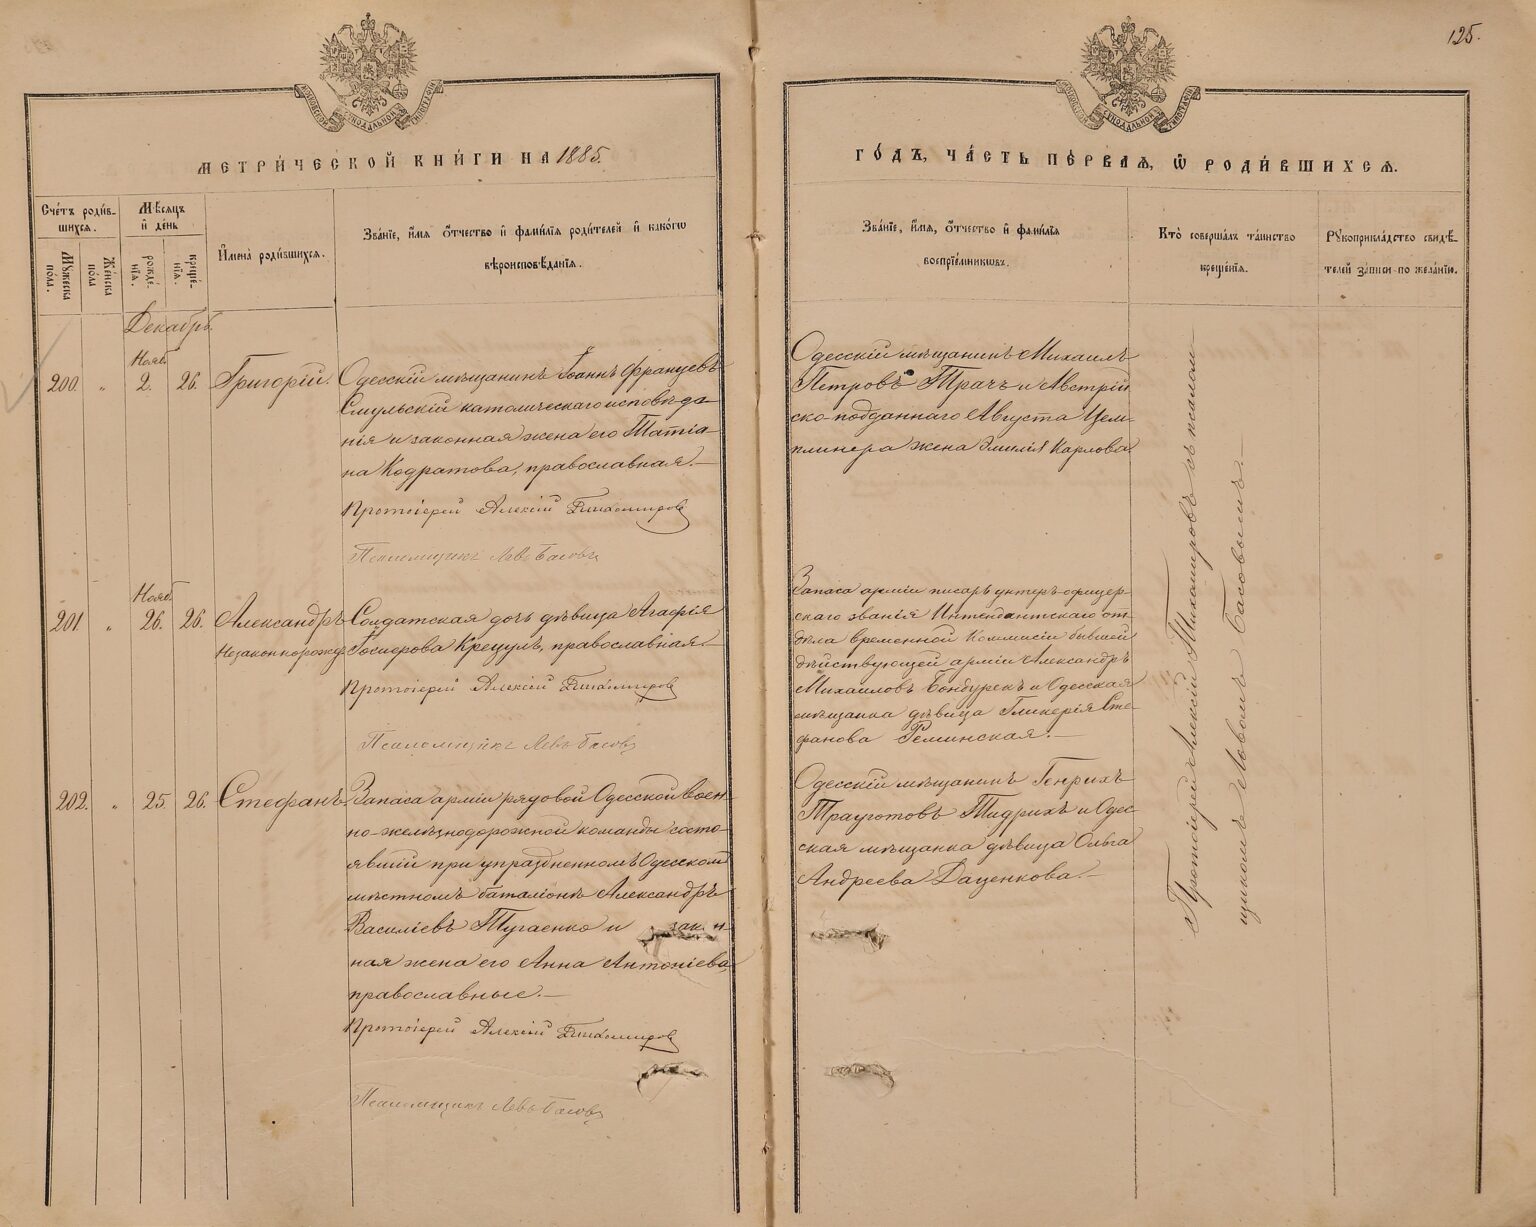 125.
МОСКОВСКОЙ СѴНОДАЛЬНОЙ ТИПОГРАФІИ
МОСКОВСКОЙ СѴНОДАЛЬНОЙ ТИПОГРАФІИ
МЕТРИ́ЧЕСКОЙ КНИ́ГИ НА 1885.
ГО́ДЪ, ЧА́СТЬ ПЕ́РВАѦ, Ѽ РОДИ́ВШИХСѦ.
Сче́тъ роди́в-
шихсѧ.
Мѹжеска
пола.
Же́нска
пола
Мѣ́сѧцъ
и҆ де́нь
рожде́-
нїѧ.
креще́-
нїѧ.
И҆мена̀ роди́вшихсѧ.
Зва́нїе, и҆́мѧ Ѻ҆́тчество и҆ фами́лїѧ роди́телей и҆ како́гѡ
вѣроисповѣ́данїѧ.
Зва́нїе, и҆́мѧ, ѻ҆́тчество и҆ фамі́лїѧ
воспрїе́мникѡвъ.
Кто̀ соверша́лъ та́инство
креще́нїѧ.
Рѹкоприкла́дство свидѣ́-
телей за́писи по жела́нїю.
Декабрь.
200. „ Нояб. 2. 26. Григорій.
Одесскій мѣщанинъ Іоаннъ Францевъ
Смульскій католическаго исповѣда-
нія и законная жена его Татіа-
на Кодратова, православная.—
Протоіерей Алексій Тихомировъ
Псаломщикъ Левъ Басовъ
Одесскій мѣщанинъ Михаилъ
Петровъ Трачъ и Австрій
ско-подданнаго Августа Цем-
плинера жена Эмилія Карлова.
201. „ Нояб. 26. 26. Александръ
Незаконнорожд.
Солдатская дочь дѣвица Агафія
Госиерова Крецулъ, православная.—
Протоіерей Алексій Тихомировъ
Псаломщикъ Левъ Басовъ
Запаса арміи писарь унтеръ-офицер-
скаго званія Интендантскаго от-
дѣла временной Коммисіи бывшей
дѣйствующей арміи Александръ
Михаиловъ Бондурекъ и Одесская
мѣщанка дѣвица Гликерія Сте-
фанова Реминская.—
202. „ 25. 26. Стефанъ.
Запаса арміи рядовой Одесской воен-
но-желѣзнодорожной команды состо-
явшій при упраздненномъ Одесскомъ
мѣстномъ баталіонѣ Александръ
Василіевъ Тугаенко и зак н-
ная жена его Анна Антоніева,
православные.—
Протоіерей Алексій Тихомировъ
Псаломщикъ Левъ Басовъ
Одесскій мѣщанинъ Генрихъ
Трауготовъ Тидрихъ и Одес-
ская мѣщанка дѣвица Ольга
Андреева Даценкова.—
Протоіерей Алексій Тихомировъ съ псалом
щикомъ Львомъ Басовымъ.